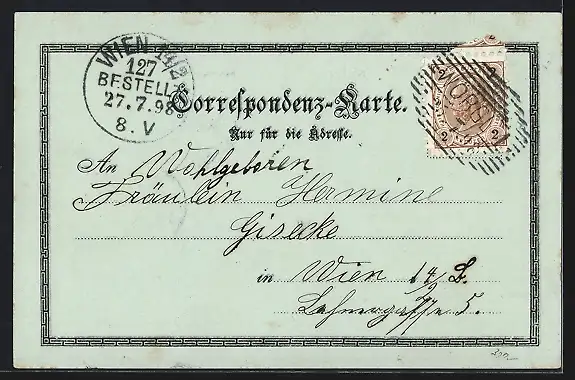 WIEN 14/2
127
BESTELLT
27.7.98
8.V
2 2
2 2
Correspondenz-Karte.
Nur für die Adresse.
An Wohlgeboren
Fräulein Hermine
Gisecke
in Wien 14/2 B.
5.